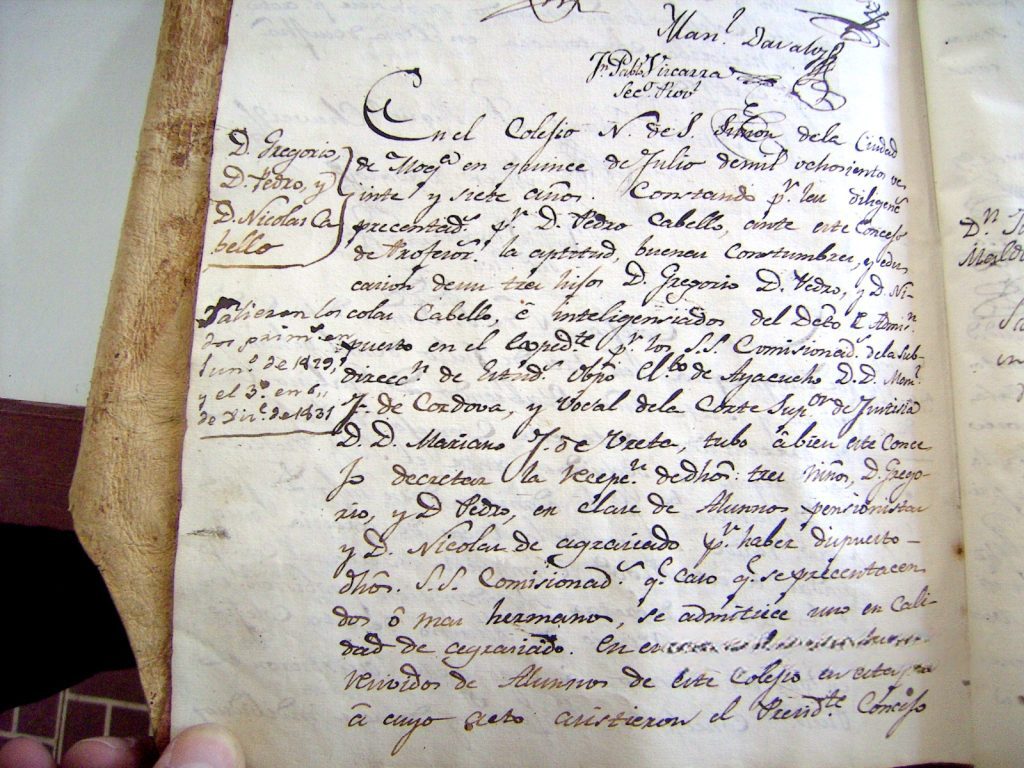 Man.l Davalos
J.n Pablo Vizcarra
Sec.o Prov.l
D. Gregorio,
D. Pedro, y
D. Nicolas Ca
bello
Salieron los
dos prim.s en
Jun.o de 1829,
y el 3.o en 6,,
de Dic.e de 1831
En el Colesio N. de S. Simon de la Ciudad
de Moq.a en quince de Julio de mil ochosientos ve
inte y siete años. Constando p.r las diligenc.s
precentad.s p.r D. Pedro Cabello, ante este Concejo
de Profesor.s la aptitud, buenas Constumbres, y edu
cacion de sus tres hijos D. Gregorio D. Pedro, y D. Ni-
colas Cabello, é inteligensiados del Decto
puesto en el Exped.te p.r los S.S. Comisionad.s de la Sub-
direcc.n de Estud.s Obpo El.to de Ayacucho D.D. Man.l
J. de Cordova, y Vocal de la Corte Sup.or de Justicia
D. D. Mariano J. de Ureta, tubo á bien este Conce
jo decretar la recepc.n de dhos. tres Niños, D. Grego
rio, y D. Pedro, en clase de Alunnos pensionistas
y D. Nicolas de agrasiado p.r haber dispuesto -
dhos. S.S. Comisionad.s q.e caso q.e se precentacen
dos ó mas hermanos, se admitiece uno en Cali-
dad de agrasiado. En
de Alunnos de este Colejio en esta
á cuyo acto asistieron el Presid.te Concejo
D.n
Maldo